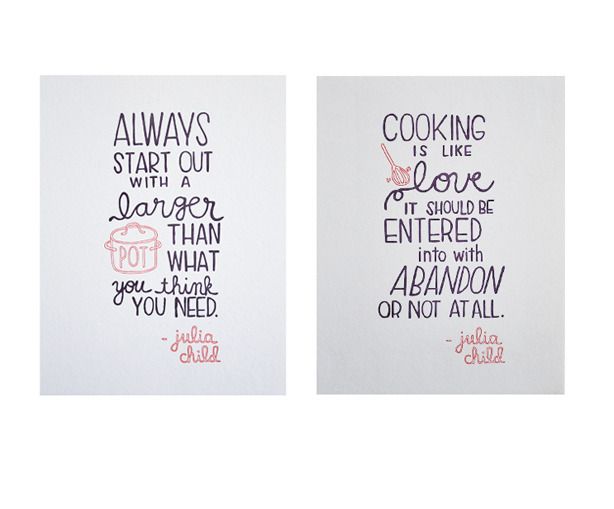 ALWAYS
START OUT
WITH A
larger
POT THAN
WHAT
you think
YOU NEED.
- julia
child
COOKING
IS LIKE
love
IT SHOULD BE
ENTERED
into with
ABANDON
OR NOT AT ALL.
- julia
child